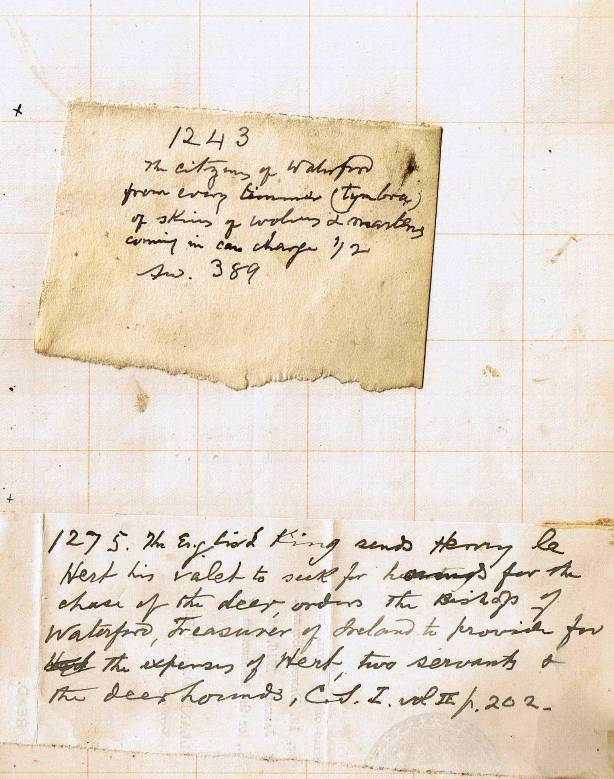 1243
The citizens of Waterford
from every timmer (tymbra)
of skins of wolves & martens
coming in can charge 1/2
Sw. 389
1275. The English King sends Henry le
Hert his valet to seek for hounds for the
chase of the deer, orders the Bishop of
Waterford, Treasurer of Ireland to provide for
the expenses of Hert, two servants &
the deerhounds, C.S.I. vol II p. 202.